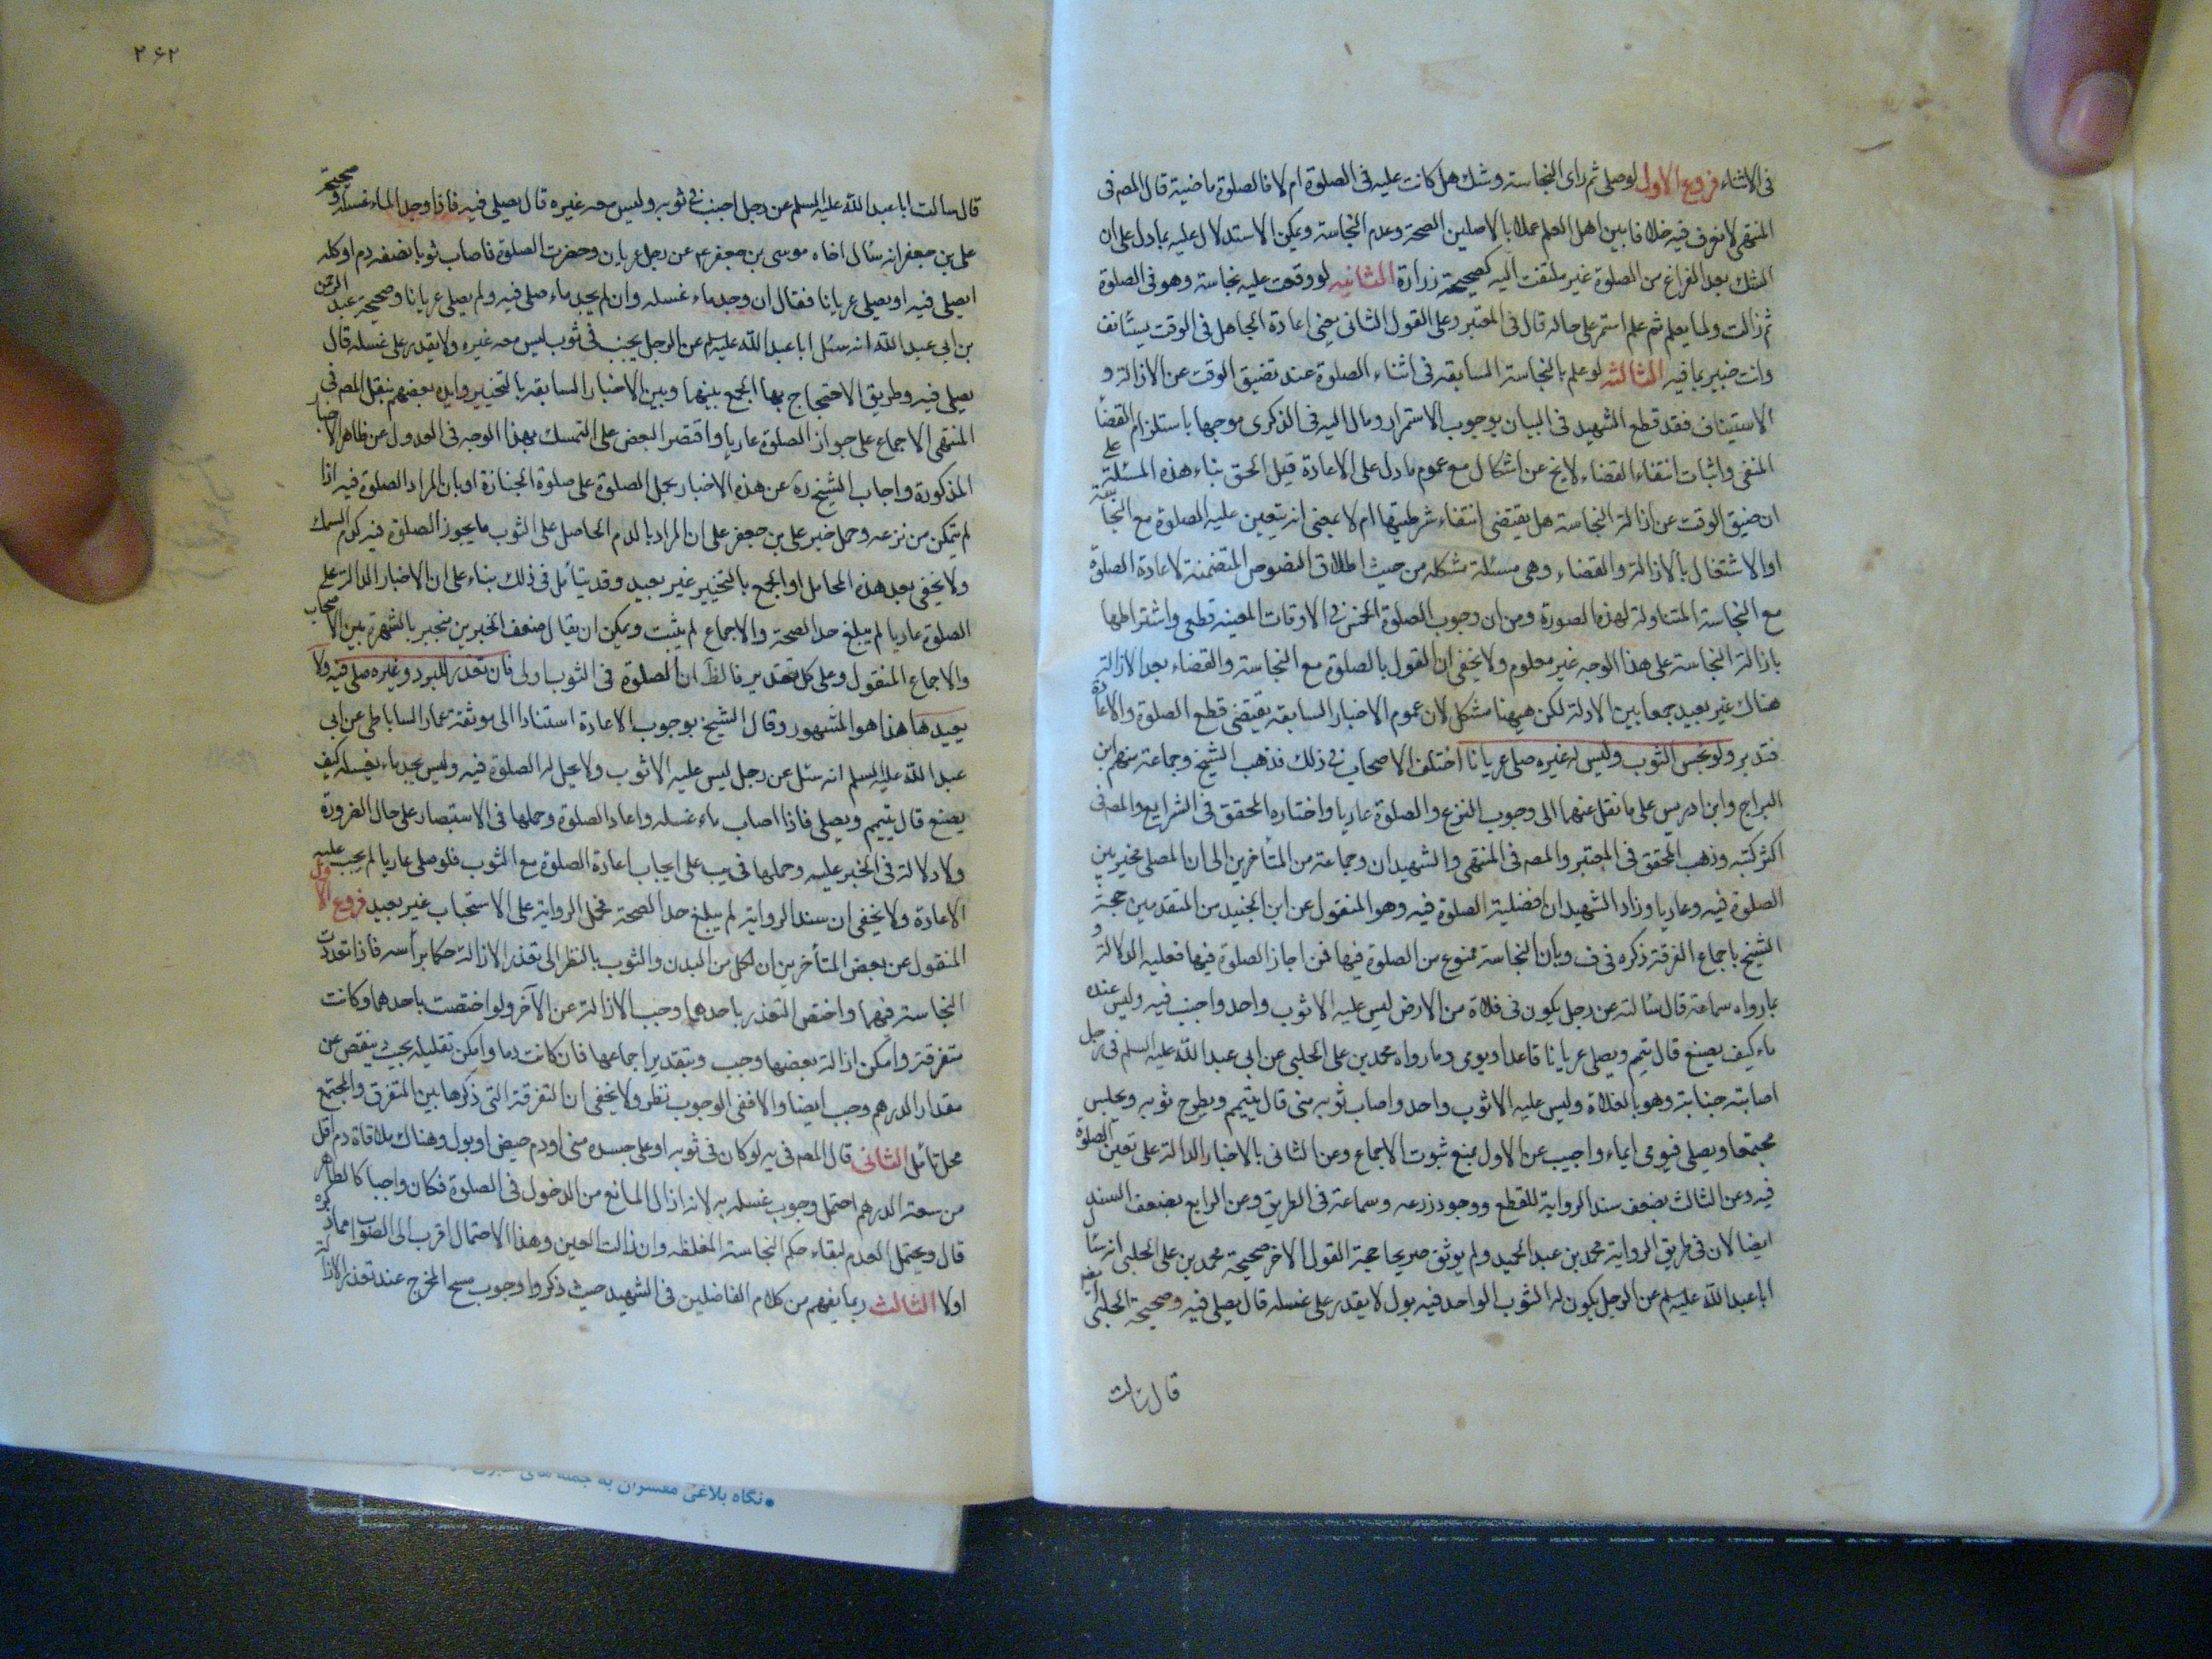 فى الاثناء فروع الاول لو صلى ثم راى النجاسة وشك هل كانت عليه فى الصلوة ام لا فالصلوة ماضية قال المصه فى
المنتهى لا نعرف فيه خلافا بين اهل العلم عملا بالاصلين الصحة وعدم النجاسة ويمكن الاستدلال عليه بما دل على ان
الشك بعد الفراغ من الصلوة غير ملتفت اليه كصحيحة زرارة الثانية لو وقعت عليه نجاسة وهو فى الصلوة
ثم زالت ولما يعلم ثم علم استمر على حاله قال فى المعتبر وعلى القول الثانى يعنى اعادة الجاهل فى الوقت يستانف
وانت خبير بما فيه الثالثة لو علم بالنجاسة السابقة فى اثناء الصلوة عند تضيق الوقت عن الازالة و
الاستيناف فقد قطع الشهيد فى البيان بوجوب الاستمرار ومال اليه فى الذكرى موجها باستلزام القضاء
المنفى واثبات انتفاء القضاء لا يخ عن اشكال مع عموم ما دل على الاعادة قيل الحق بناء هذه المسئلة على
ان ضيق الوقت عن ازالة النجاسة هل يقتضى انتفاء شرطيتها ام لا بمعنى انه يتعين عليه الصلوة مع النجاسة
او الاشتغال بالازالة والقضاء وهى مسئلة مشكله من حيث اطلاق النصوص المتضمنة لاعادة الصلوة
مع النجاسة المتناولة لهذه الصورة ومن ان وجوب الصلوة الخمس فى الاوقات المعينه قطعى واشتراطها
بازالة النجاسة على هذا الوجه غير معلوم ولا يخفى ان القول بالصلوة مع النجاسة والقضاء بعد الازالة
هناك غير بعيد جمعا بين الادلة لكن هيهنا مشكل لان عموم الاخبار السابقه يقتضى قطع الصلوة والاعادة
فتدبر ولو نجس الثوب وليس له غيره صلى عريانا اختلف الاصحاب فى ذلك فذهب الشيخ وجماعة منهم ابن
البراج وابن ادريس على ما نقل عنهما الى وجوب النزع والصلوة عاريا واختاره المحقق فى الشرايع والمصه فى
اكثر كتبه وذهب المحقق فى المعتبر والمصه فى المنتهى والشهيدان وجماعة من المتأخرين الى ان المصلى مخير بين
الصلوة فيه وعاريا وزاد الشهيدان افضلية الصلوة فيه وهو المنقول عن ابن الجنيد من المتقدمين حجة
الشيخ باجماع الفرقة ذكره فى ف وبان النجاسة ممنوع من الصلوة فيها فمن اجاز الصلوة فيها فعليه الدلالة و
بما رواه سماعة قال سالته عن رجل يكون فى فلاة من الارض ليس عليه الا ثوب واحد واجنب فيه وليس عنده
ماء كيف يصنع قال يتيمم ويصلى عريانا قاعدا ويومى وما رواه محمد بن على الحلبى عن ابى عبد الله عليه السلم فى رجل
اصابته جنابة وهو بالفلاة وليس عليه الا ثوب واحد واصاب ثوبه منى قال يتيمم ويطرح ثوبه ويجلس
مجتمعا ويصلى فيومى ايماء واجيب عن الاول بمنع ثبوت الاجماع وعن الثانى بالاخبار الدالة على تعين الصلوة
فيه وعن الثالث بضعف سند الرواية للقطع ووجود زرعه وسماعة فى الطريق وعن الرابع بضعف السند
ايضا لان فى طريق الرواية محمد بن عبد الحميد ولم يوثق صريحا حجة القول الاخر صحيحة محمد بن على الحلبى انه سأل
ابا عبد الله عليه سلم عن الرجل يكون له الثوب الواحد فيه بول لا يقدر على غسله قال يصلى فيه وصحيحة الحلبى
قال سالت
۲۶۲
قال سالت ابا عبد الله عليه السلم عن رجل اجنب فى ثوبه وليس معه غيره قال يصلى فيه فاذا وجد الماء غسله وصحيحة
على بن جعفر انه سال اخاه موسى بن جعفر ع عن رجل عريان وحضرت الصلوة فاصاب ثوبا نصفه دم او كله
ايصلى فيه او يصلى عريانا فقال ان وجد ماء غسله وان لم يجد ماء صلى فيه ولم يصلى عريانا وصحيحة عبد الرحمن
بن ابى عبد الله انه سئل ابا عبد الله عليه سلم عن الرجل يجنب فى ثوب ليس معه غيره ولا يقدر على غسله قال
يصلى فيه وطريق الاحتجاج بها الجمع بينها وبين الاخبار السابقه بالتخيير وايده بعضهم بنقل المصه فى
المنتهى الاجماع على جواز الصلوة عاريا واقتصر البعض على التمسك بهذا الوجه فى العدول عن ظاهر الاخبار
المذكورة واجاب الشيخ ره عن هذه الاخبار بحمل الصلوة على صلوة الجنازة او بان المراد الصلوة فيه اذا
لم يتمكن من نزعه وحمل خبر على بن جعفر على ان المراد بالدم الحاصل على الثوب ما يجوز الصلوة فيه كدم السمك
ولا يخفى بعد هذه المحامل او الجمع بالتخيير غير بعيد وقد يتأمل فى ذلك بناء على ان الاخبار الدالة على
الصلوة عاريا لم يبلغ حد الصحة والاجماع لم يثبت ويمكن ان يقال ضعف الخبرين منجبر بالشهرة بين الاصحاب
والاجماع المنقول وعلى كل تقدير فالظ ان الصلوة فى الثوب اولى فان تعذر للبرد وغيره صلى فيه ولا
يعيدها هذا هو المشهور وقال الشيخ بوجوب الاعادة استنادا الى موثقة عمار الساباطى عن ابى
عبد الله عليه السلم انه سئل عن رجل ليس عليه الا ثوب ولا يحل له الصلوة فيه وليس يجد ماء يغسله كيف
يصنع قال يتيمم ويصلى فاذا اصاب ماء غسله واعاد الصلوة وحملها فى الاستبصار على حال الضرورة
ولا دلالة فى الخبر عليه وحملها فى يب على ايجاب اعادة الصلوة مع الثوب فلو صلى عاريا لم يجب عليه
الاعادة ولا يخفى ان سند الرواية لم يبلغ حد الصحة فحمل الرواية على الاستحباب غير بعيد فروع الاول
المنقول عن بعض المتأخرين ان لكل من البدن والثوب بالنظر الى تعذر الازالة حكما برأسه فاذا تعددت
النجاسة فيهما واختص التعذر باحدهما وجب الازالة عن الآخر ولو اختصت باحدهما وكانت
متفرقة وامكن ازالة بعضها وجب وبتقدير اجماعها فان كانت دما وامكن تقليله بحيث ينقص عن
مقدار الدرهم وجب ايضا والا ففى الوجوب نظر ولا يخفى ان التفرقة التى ذكرها بين المتفرق والمجتمع
محل تأمل الثانى قال المصه فى يه لو كان فى ثوبه او على جسده منى او دم حيض او بول وهناك ملاقاة دم اقل
من سعة الدرهم احتمل وجوب غسله به لانه ازال المانع من الدخول فى الصلوة فكان واجبا كالطاهر
قال ويحتمل العدم لبقاء حكم النجاسة المغلظه وان زالت العين وهذا الاحتمال اقرب الى الصواب مما ذكره
اولا الثالث ربما يفهم من كلام الفاضلين فى الشهيد حيث ذكروا وجوب مسح المخرج عند تعذر الازالة
نگاه بلاغی مفسران به جمله های